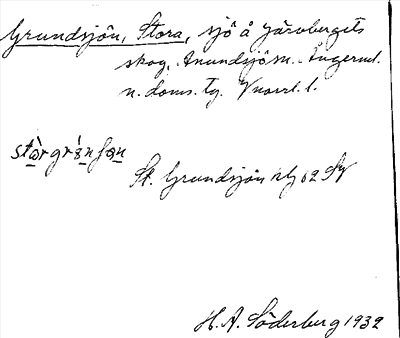 Grundsjön, Stora, sjö å Järvbergets
skog, Anundsjö sn. Ångerml.
n. doms. tg. Vnorrl. l.
St. Grundsjön rkg 62 SV
H. A. Söderberg 1932